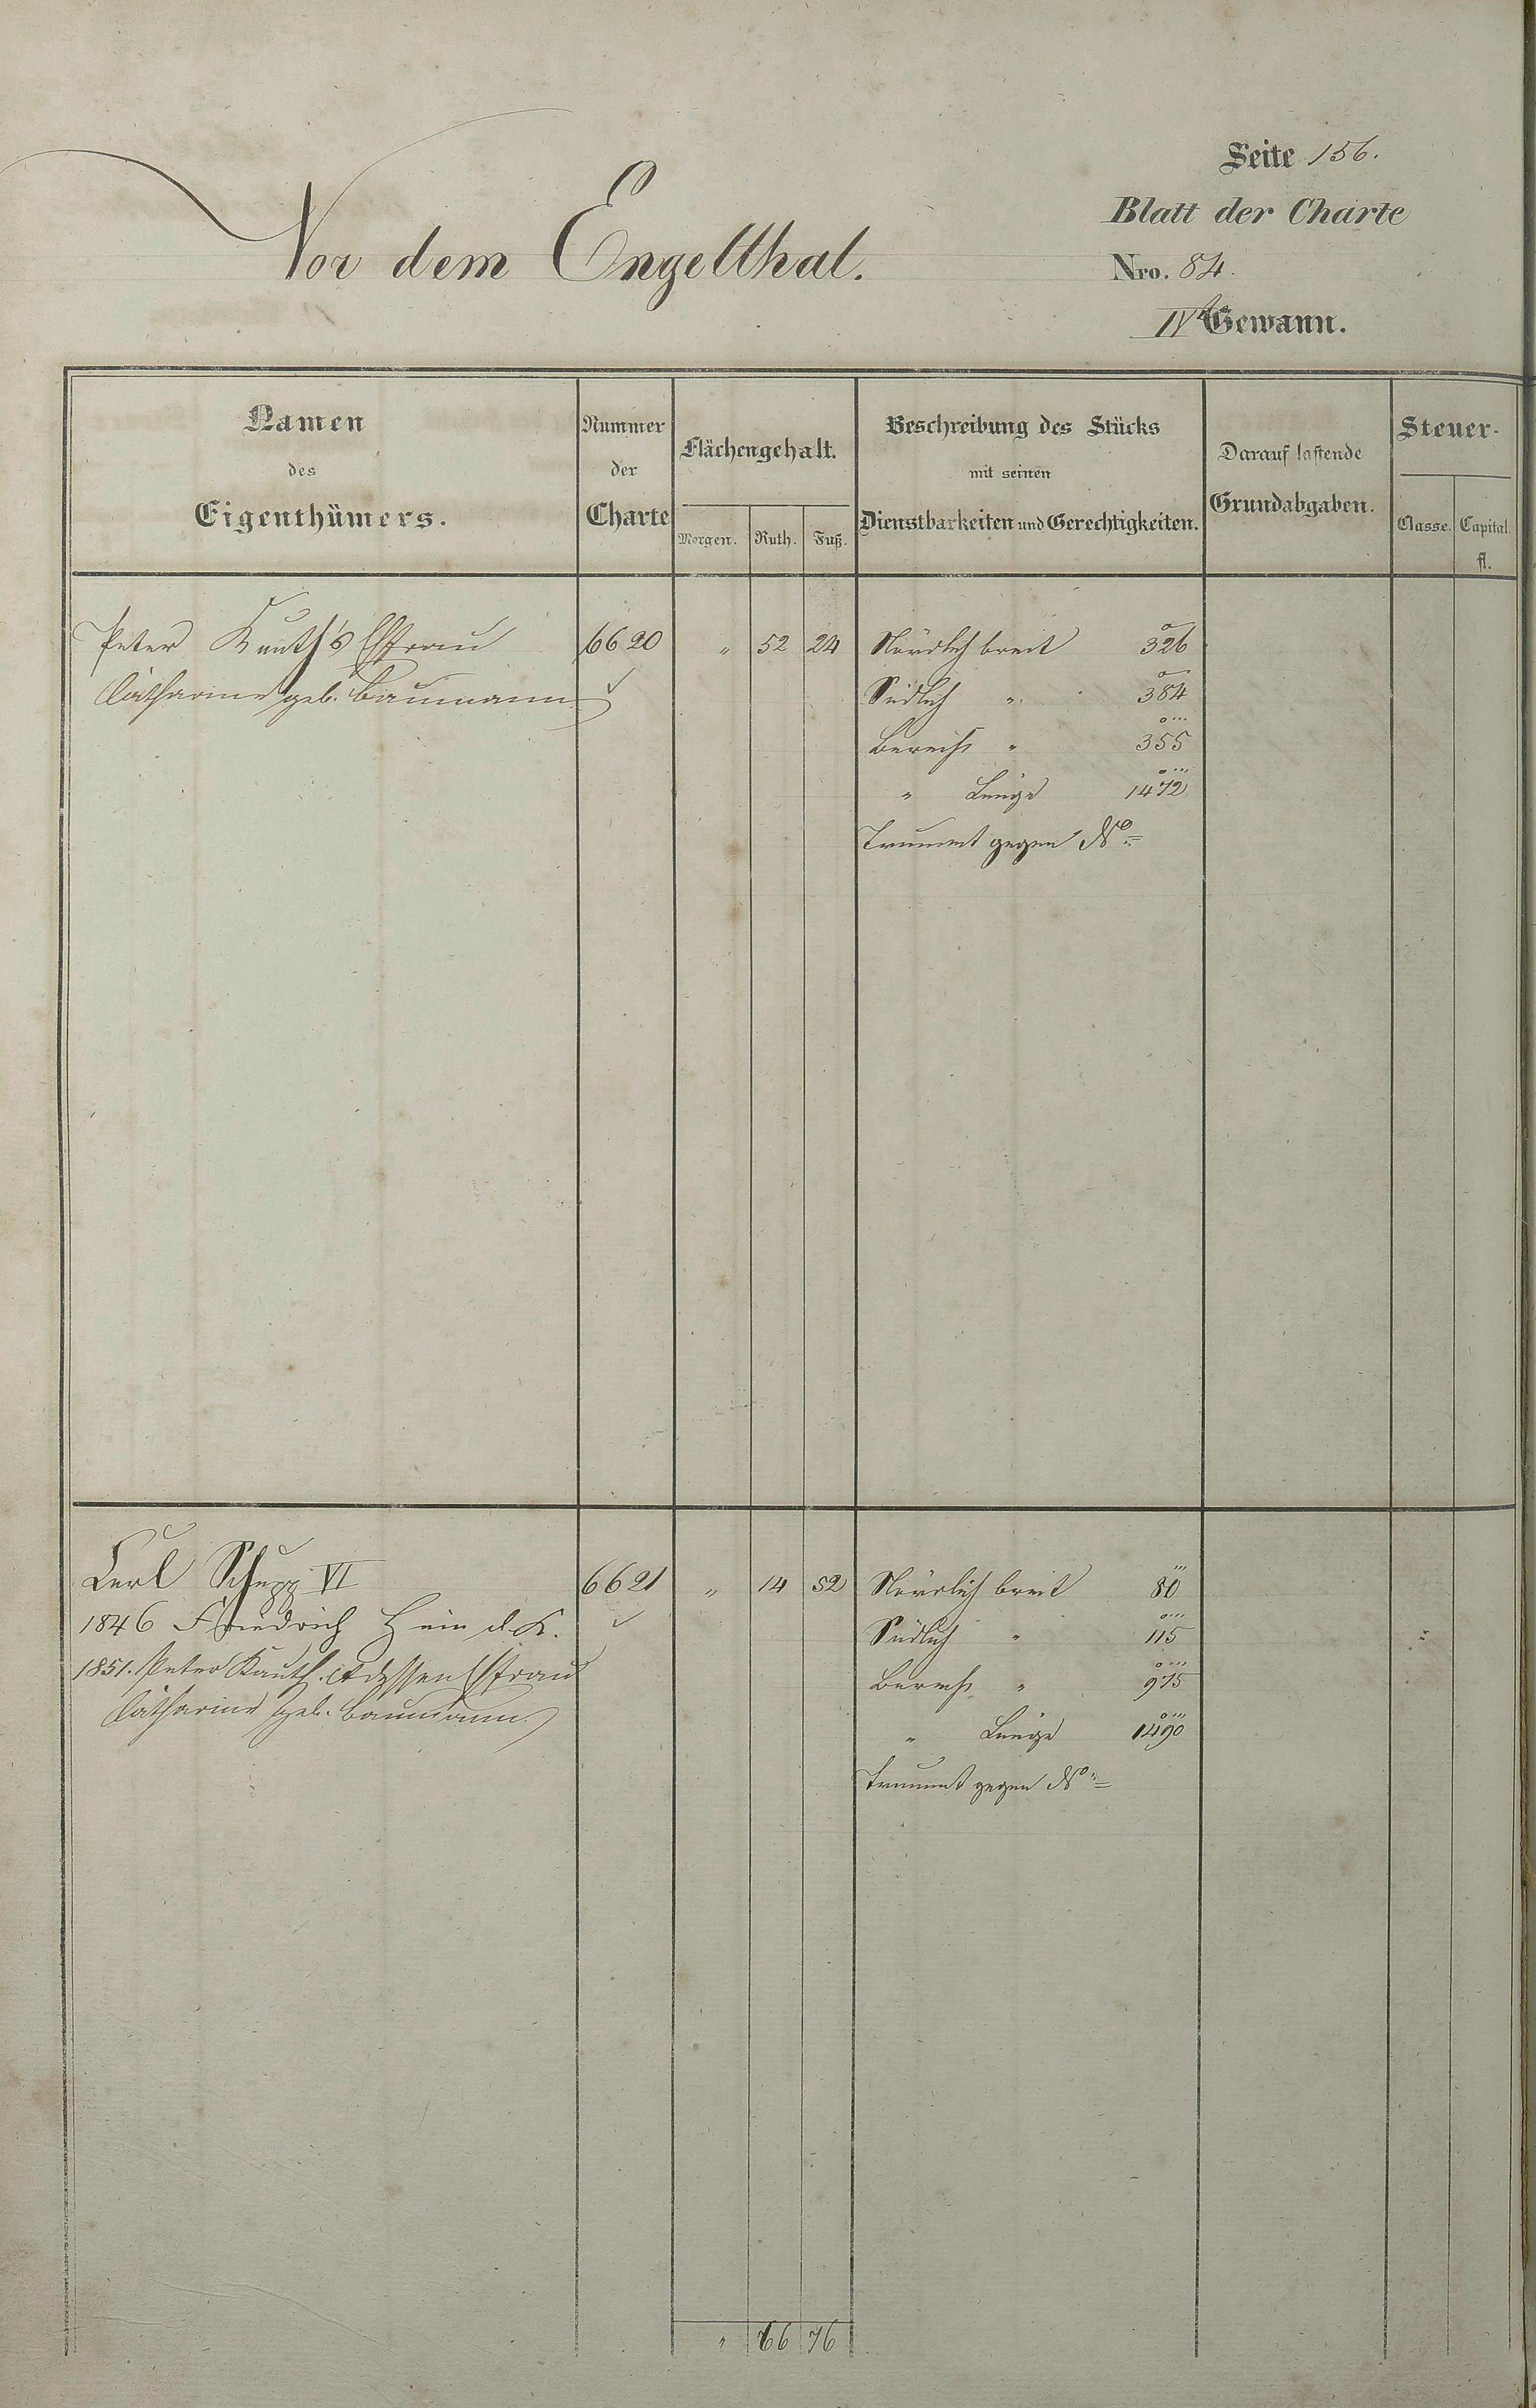 Seite 156.
Vor dem Engelthal.
Blatt der Charte
Nro. 84.
IVte Gewann.
Namen
des
Eigenthümers.
Nummer
der
Charte
Flächengehalt.
Morgen. Ruth. Fuß.
Beschreibung des Stücks
mit seinen
Dienstbarkeiten und Gerechtigkeiten.
Darauf lastende
Grundabgaben.
Steuer-
Classe. Capital.
fl.
Peter Kauth's Ehfrau 6620 " 52 24 Nördlich breit 326
Catharine geb. Baumann ✓ Südlich " 384
Berech " 355
" Länge 1472
Trummt gegen No =
Carl Schupp VI 6621 " 14 52 Nördlich breit 80
1846 Friedrich Hein d. K. ✓ Südlich " 115
1851. Peter Kauth dessen Ehfrau Berech " 975
Catharine geb. Baumann " Länge 1490
Trummt gegen No =
" 66 76